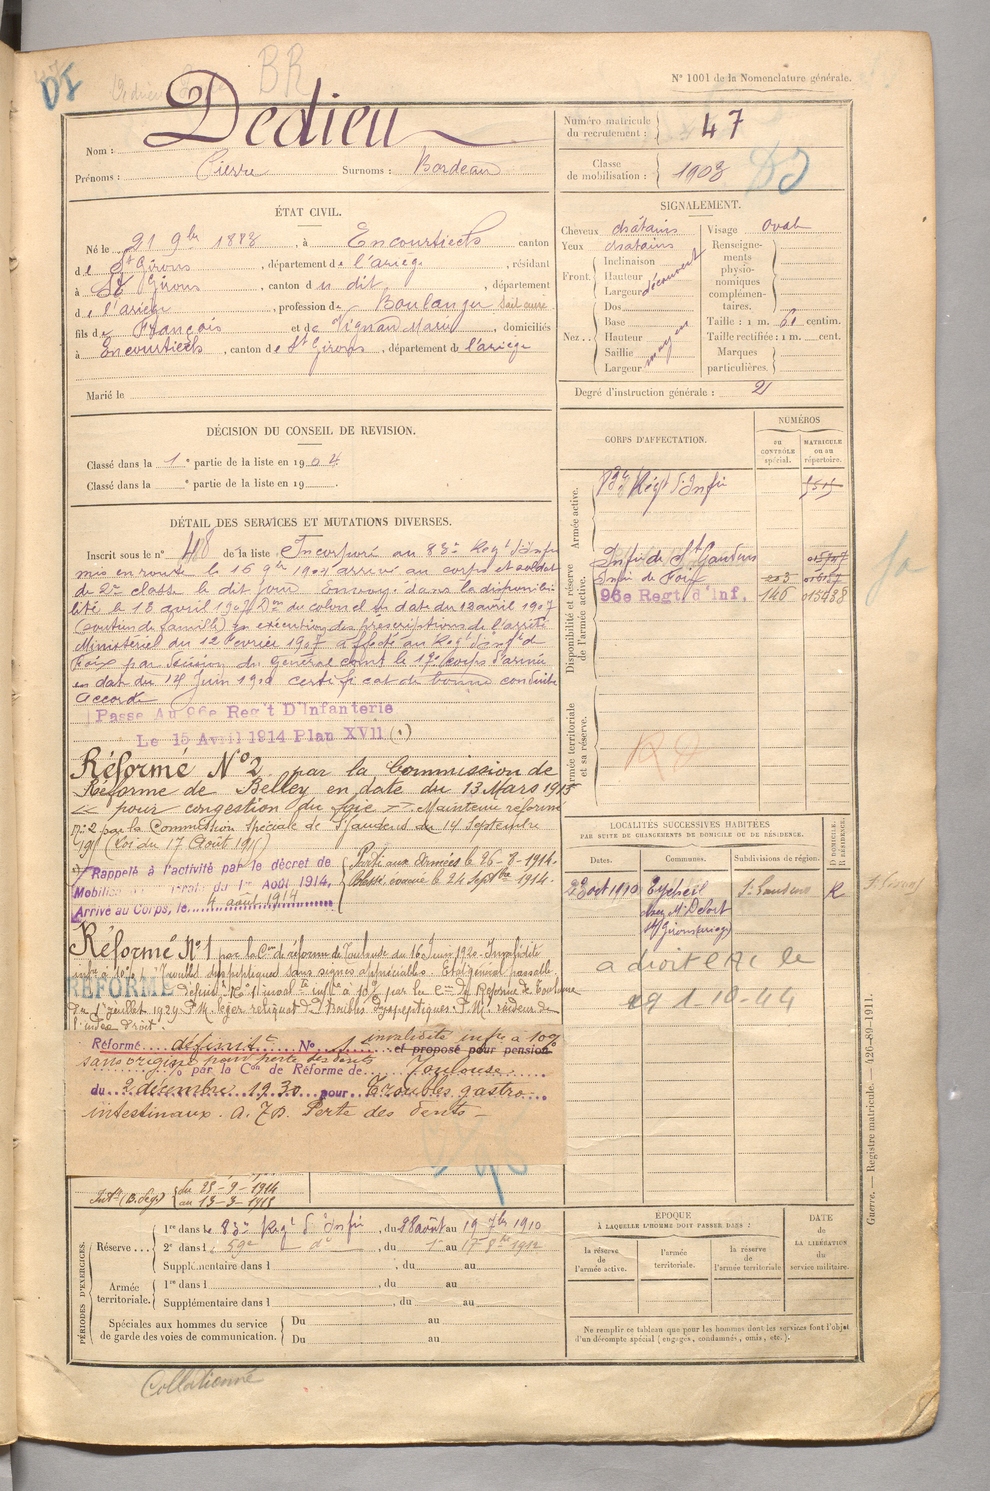 BR
N° 1001 de la Nomenclature générale.
Nom : Dedieu
Prénoms : Pierre Surnoms : Bordeau
Numéro matricule du recrutement : 47
Classe de mobilisation : 1903
ÉTAT CIVIL.
Né le 21 9bre 1883, à Encourtiech canton
de St Girons, département de l'ariège, résidant
à St Girons, canton du dit, département
de l'ariège, profession de Boulanger sait cuire
fils de François et de Vignau Marie, domiciliés
à Encourtiech, canton de St Girons, département de l'ariège
Marié le
SIGNALEMENT.
Cheveux châtains Visage Oval
Yeux châtains Renseignements physionomiques complémentaires.
Front. Inclinaison
Hauteur
Largeur découvert
Nez.. Dos
Base
Hauteur
Saillie
Largeur moyen
Taille : 1 m. 61 centim.
Taille rectifiée : 1 m. cent.
Marques particulières.
Degré d'instruction générale : 2
DÉCISION DU CONSEIL DE REVISION.
Classé dans la 1e partie de la liste en 1904
Classé dans la e partie de la liste en 19
DÉTAIL DES SERVICES ET MUTATIONS DIVERSES.
Inscrit sous le n° 48 de la liste Incorporé au 83e Regt d'Infie
mis en route le 16 9bre 1904 arrivé au corps et soldat
de 2me classe le dit jour Envoyé dans la disponibi-
lité le 18 avril 1907 Don du colonel en date du 12 avril 1907
(soutien de famille) En exécution des prescriptions de l'arrêté
Ministériel du 12 Février 1907 affecté au Regt d'Infie de
Foix par décision du Général comt le 17e corps d'armée
en date du 14 Juin 1910 certificat de bonne conduite
accordé
Passé Au 96e Regt D'Infanterie
Le 15 Avril 1914 Plan XVII (.)
Réformé N°2 par la Commission de
Réforme de Belley en date du 13 Mars 1915
<< pour congestion du foie >> Maintenu réformé
n°2 par la Commission Spéciale de St Gaudens du 14 Septembre
(loi du 17 Août 1915)
Rappelé à l'activité par le décret de
Mobilisation générale du 1er Août 1914,
Arrivé au Corps, le 4 aout 1914
Parti aux Armées le 26-8-1914.
Blessé, évacué le 24 Septbre 1914.
Réformé N°1 par la Con de réforme de Toulouse du 16 Juin 1920. Invalidité
infre à 10% Troubles dyspeptiques sans signes appréciables. Etat général passable
REFORMÉ Définitf N°1 inval té infre à 10% par la Con de Réforme de Toulouse
du Juillet 1929 P.M. léger reliquat de troubles dyspeptiques. P.M. raideur de
l'index droit.
Réformé définitt N° 1 invalidité infre à 10% et proposé pour pension
sans origine pour perte des dents
% par la Con de Réforme de Toulouse
du 2 décembre 1930 pour Troubles gastro
intestinaux. Perte des dents
du 25-9-1914
au 13-3-1915
CORPS D'AFFECTATION.
NUMÉROS
au CONTRÔLE spécial.
MATRICULE ou au répertoire.
Armée active.
83e Régt d'Infie
Disponibilité et réserve de l'armée active.
Infie de St Gaudens
Infie de Foix
96e Regt d'Inf. 146 015438
Armée territoriale et sa réserve.
LOCALITÉS SUCCESSIVES HABITÉES
PAR SUITE DE CHANGEMENTS DE DOMICILE OU DE RÉSIDENCE.
Dates. Communes. Subdivisions de région. D DOMICILE. R RÉSIDENCE.
23 oct 1910 Eycheil St Gaudens R
chez Mr Delort
St Girons (ariège)
a droit CAC le
1-10-44
PÉRIODES D'EXERCICES.
Réserve... 1re dans le 83e Regt d'Infie, du 28 août au 19 7bre 1910
2e dans l 59e do, du 1er au 17 8bre 1912
Supplémentaire dans l , du au
Armée territoriale. 1re dans l , du au
Supplémentaire dans l , du au
Spéciales aux hommes du service de garde des voies de communication. Du au
Du au
ÉPOQUE
À LAQUELLE L'HOMME DOIT PASSER DANS :
la réserve de l'armée active.
l'armée territoriale.
la réserve de l'armée territoriale
DATE de LA LIBÉRATION du service militaire.
Ne remplir ce tableau que pour les hommes dont les services font l'objet
d'un décompte spécial (engagés, condamnés, omis, etc.).
Guerre. — Registre matricule. — 426-89-1911.
Collationné